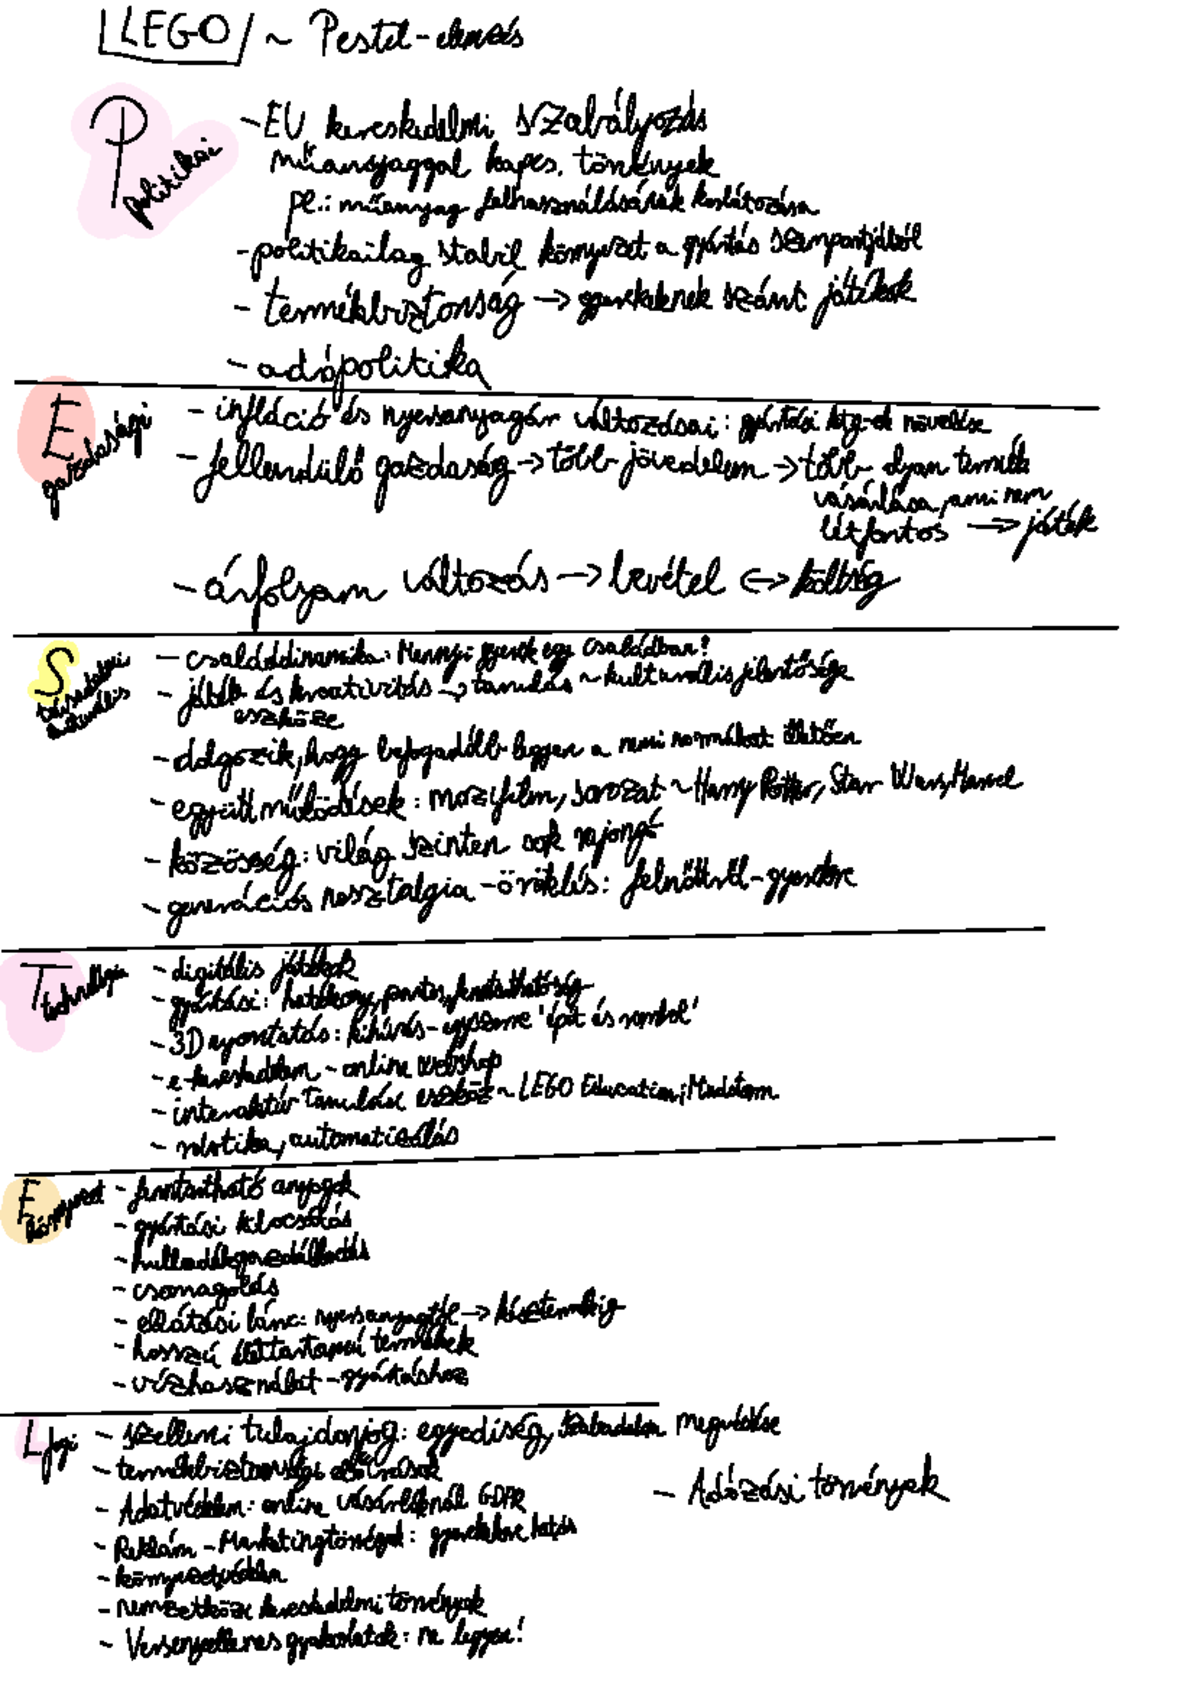 LEGO ~ Pestel-elemzés
P politikai
- EU kereskedelmi szabályozás
műanyaggal kapcs. törvények
pl.: műanyag felhasználásának korlátozása
- politikailag stabil környezet a gyártás szempontjából
- termékbiztonság → gyerekeknek szánt játékok
- adópolitika
E gazdasági
- infláció és nyersanyagár változásai: gyártási ktg-ek növelése
- fellendülő gazdaság → több jövedelem → több olyan termék
vásárlása, ami nem
létfontos → játék
- árfolyam változás → bevétel ↔ költség
S társadalmi kulturális
- családdinamika: Mennyi gyerek egy családban?
- játék és kreativitás → tanulás ~ kulturális jelentősége
eszköze
- dolgozik, hogy befogadóbb legyen a nemi normákat illetően
- együttműködések: mozifilm, sorozat ~ Harry Potter, Star Wars, Marvel
- közösség: világ szinten sok rajongó
- generációs nosztalgia - öröklés: felnőttről - gyerekre
T technológia
- digitális játékok
- gyártási: hatékony, pontos, fenntarthatóság
- 3D nyomtatás: kihívás - egyszerre 'épít és rombol'
- e-kereskedelem - online webshop
- interaktív tanulási eszköz ~ LEGO Education;
- robotika, automatizálás
E környezet
- fenntartható anyagok
- gyártási kibocsátás
- hulladékgazdálkodás
- csomagolás
- ellátási lánc: nyersanyagtól → késztermékig
- hosszú élettartamú termékek
- vízhasználat - gyártáshoz
L jogi
- szellemi tulajdonjog: egyediség, szabadalom megvédése
- termékbiztonsági előírások
- Adózási törvények
- Adatvédelem: online vásárlóknál GDPR
- Reklám - : gyerekekre hatás
- környezetvédelem
- nemzetközi kereskedelmi törvények
- Versenyellenes gyakorlatok: ne legyen!